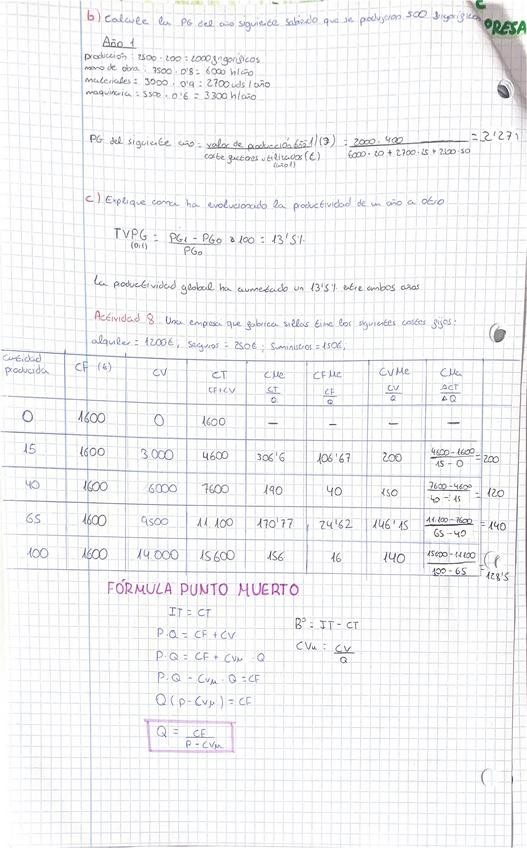 b) Calcule la PG del año siguiente sabiendo que se produjeron 500 frigoríficos
PRESA
Año 1
producción: 2500 · 200 = 2000 frigoríficos
mano de obra: 7500 · 0'8 = 6000 h/año
materiales: 3000 · 0'9 = 2700 uds/año
maquinaria: 5500 · 0'6 = 3300 h/año
PG del siguiente año = valor de producción (año 1) / coste factores utilizados (€) (año 1) = 2000 · 400 / 6000 · 20 + 2700 · 25 + · 50 = 2'271
c) Explique como ha evolucionado la productividad de un año a otro
TVPG (0,1) = PG1 - PG0 / PG0 x 100 = 13'5%
La productividad global ha aumentado un 13'5% entre ambos años
Actividad 8. Una empresa que fabrica sillas tine los siguientes costes fijos:
alquiler = 1200€, Seguros = 250€, Suministros = 150€.
Cantidad producida CF (€) CV CT CF+CV CMe CT/Q CFMe CF/Q CVMe CV/Q CMa ΔCT/ΔQ
0 1600 0 1600 — — — —
15 1600 3.000 4600 306'6 106'67 200 4600-1600 / 15-0 = 200
40 1600 6000 7600 190 40 150 7600-4600 / 40-15 = 120
65 1600 9500 11.100 170'77 24'62 146'15 11.100-7600 / 65-40 = 140
100 1600 14.000 15600 156 16 140 15600-11100 / 100-65 = 128'5
FÓRMULA PUNTO MUERTO
IT = CT
P·Q = CF + CV
P·Q = CF + CVM · Q
P·Q - CVM · Q = CF
Q(P-CVM) = CF
Q = CF / P-CVM
Bº = IT - CT
CVu = CV / Q